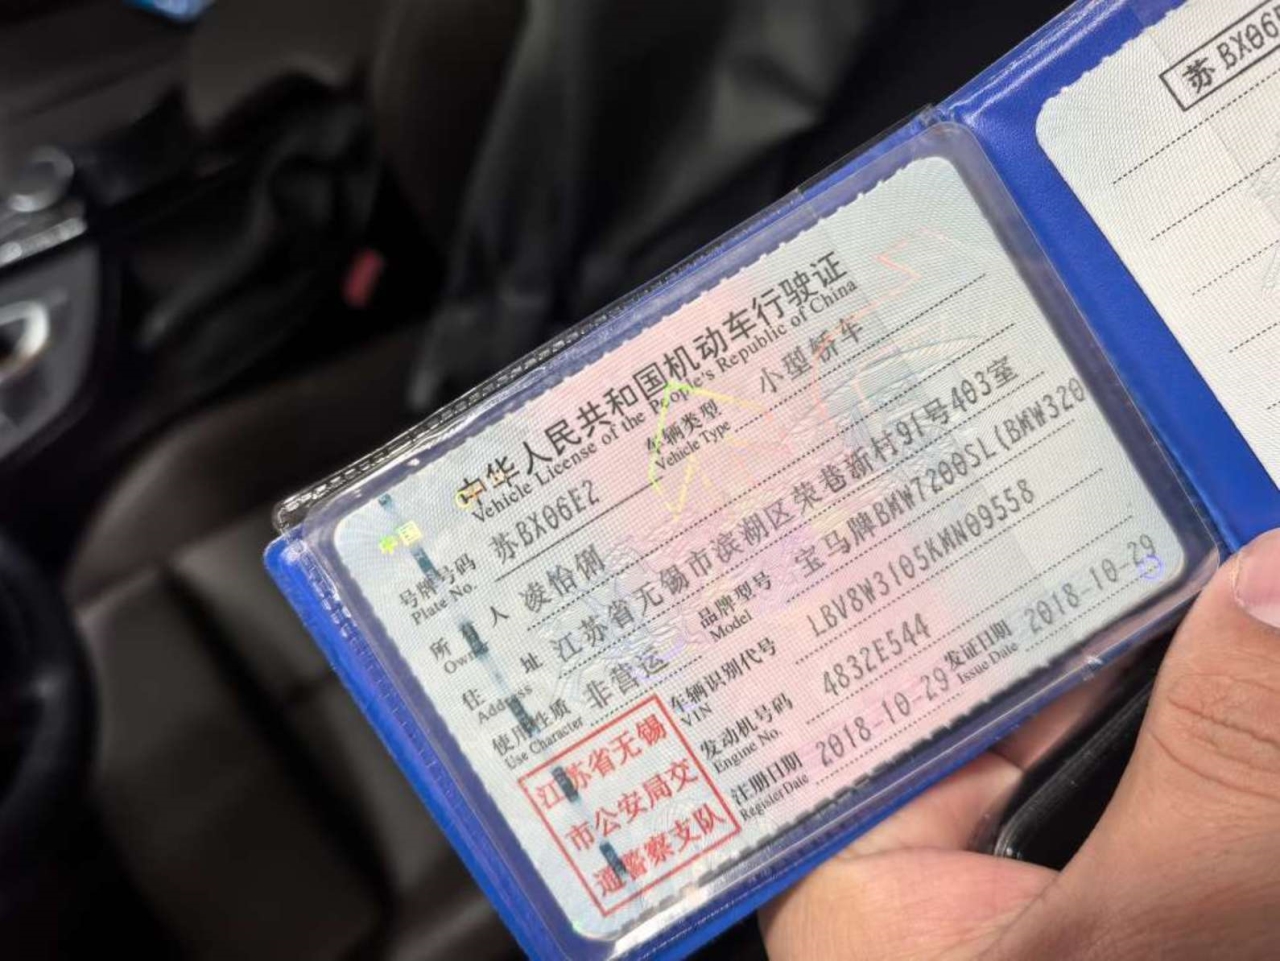 中华人民共和国机动车行驶证
Vehicle License of the People's Republic of China
中国
号牌号码 苏BX06E2 车辆类型 小型轿车
Plate No. Vehicle Type
所 人 凌怡侧
Own
住 址 江苏省无锡市滨湖区荣巷新村91号403室
Address
使用性质 非营运 品牌型号 宝马牌BMW7200SL(BMW320
Use Character Model
车辆识别代号 LBV8W3105KMN09558
VIN
发动机号码 4832E544
Engine No.
注册日期 2018-10-29 发证日期 2018-10-29
Register Date Issue Date
江苏省无锡
市公安局交
通警察支队
苏BX06